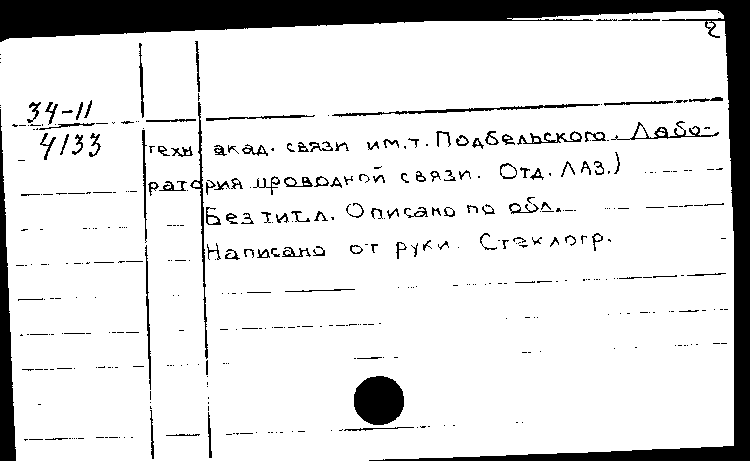 2
34-11
4133
техн акад. связи им.т. Подбельского. Лабо-
ратория проводной связи. Отд. ЛАЗ.)
Без тит.л. Описано по обл.
Написано от руки. Стеклогр.